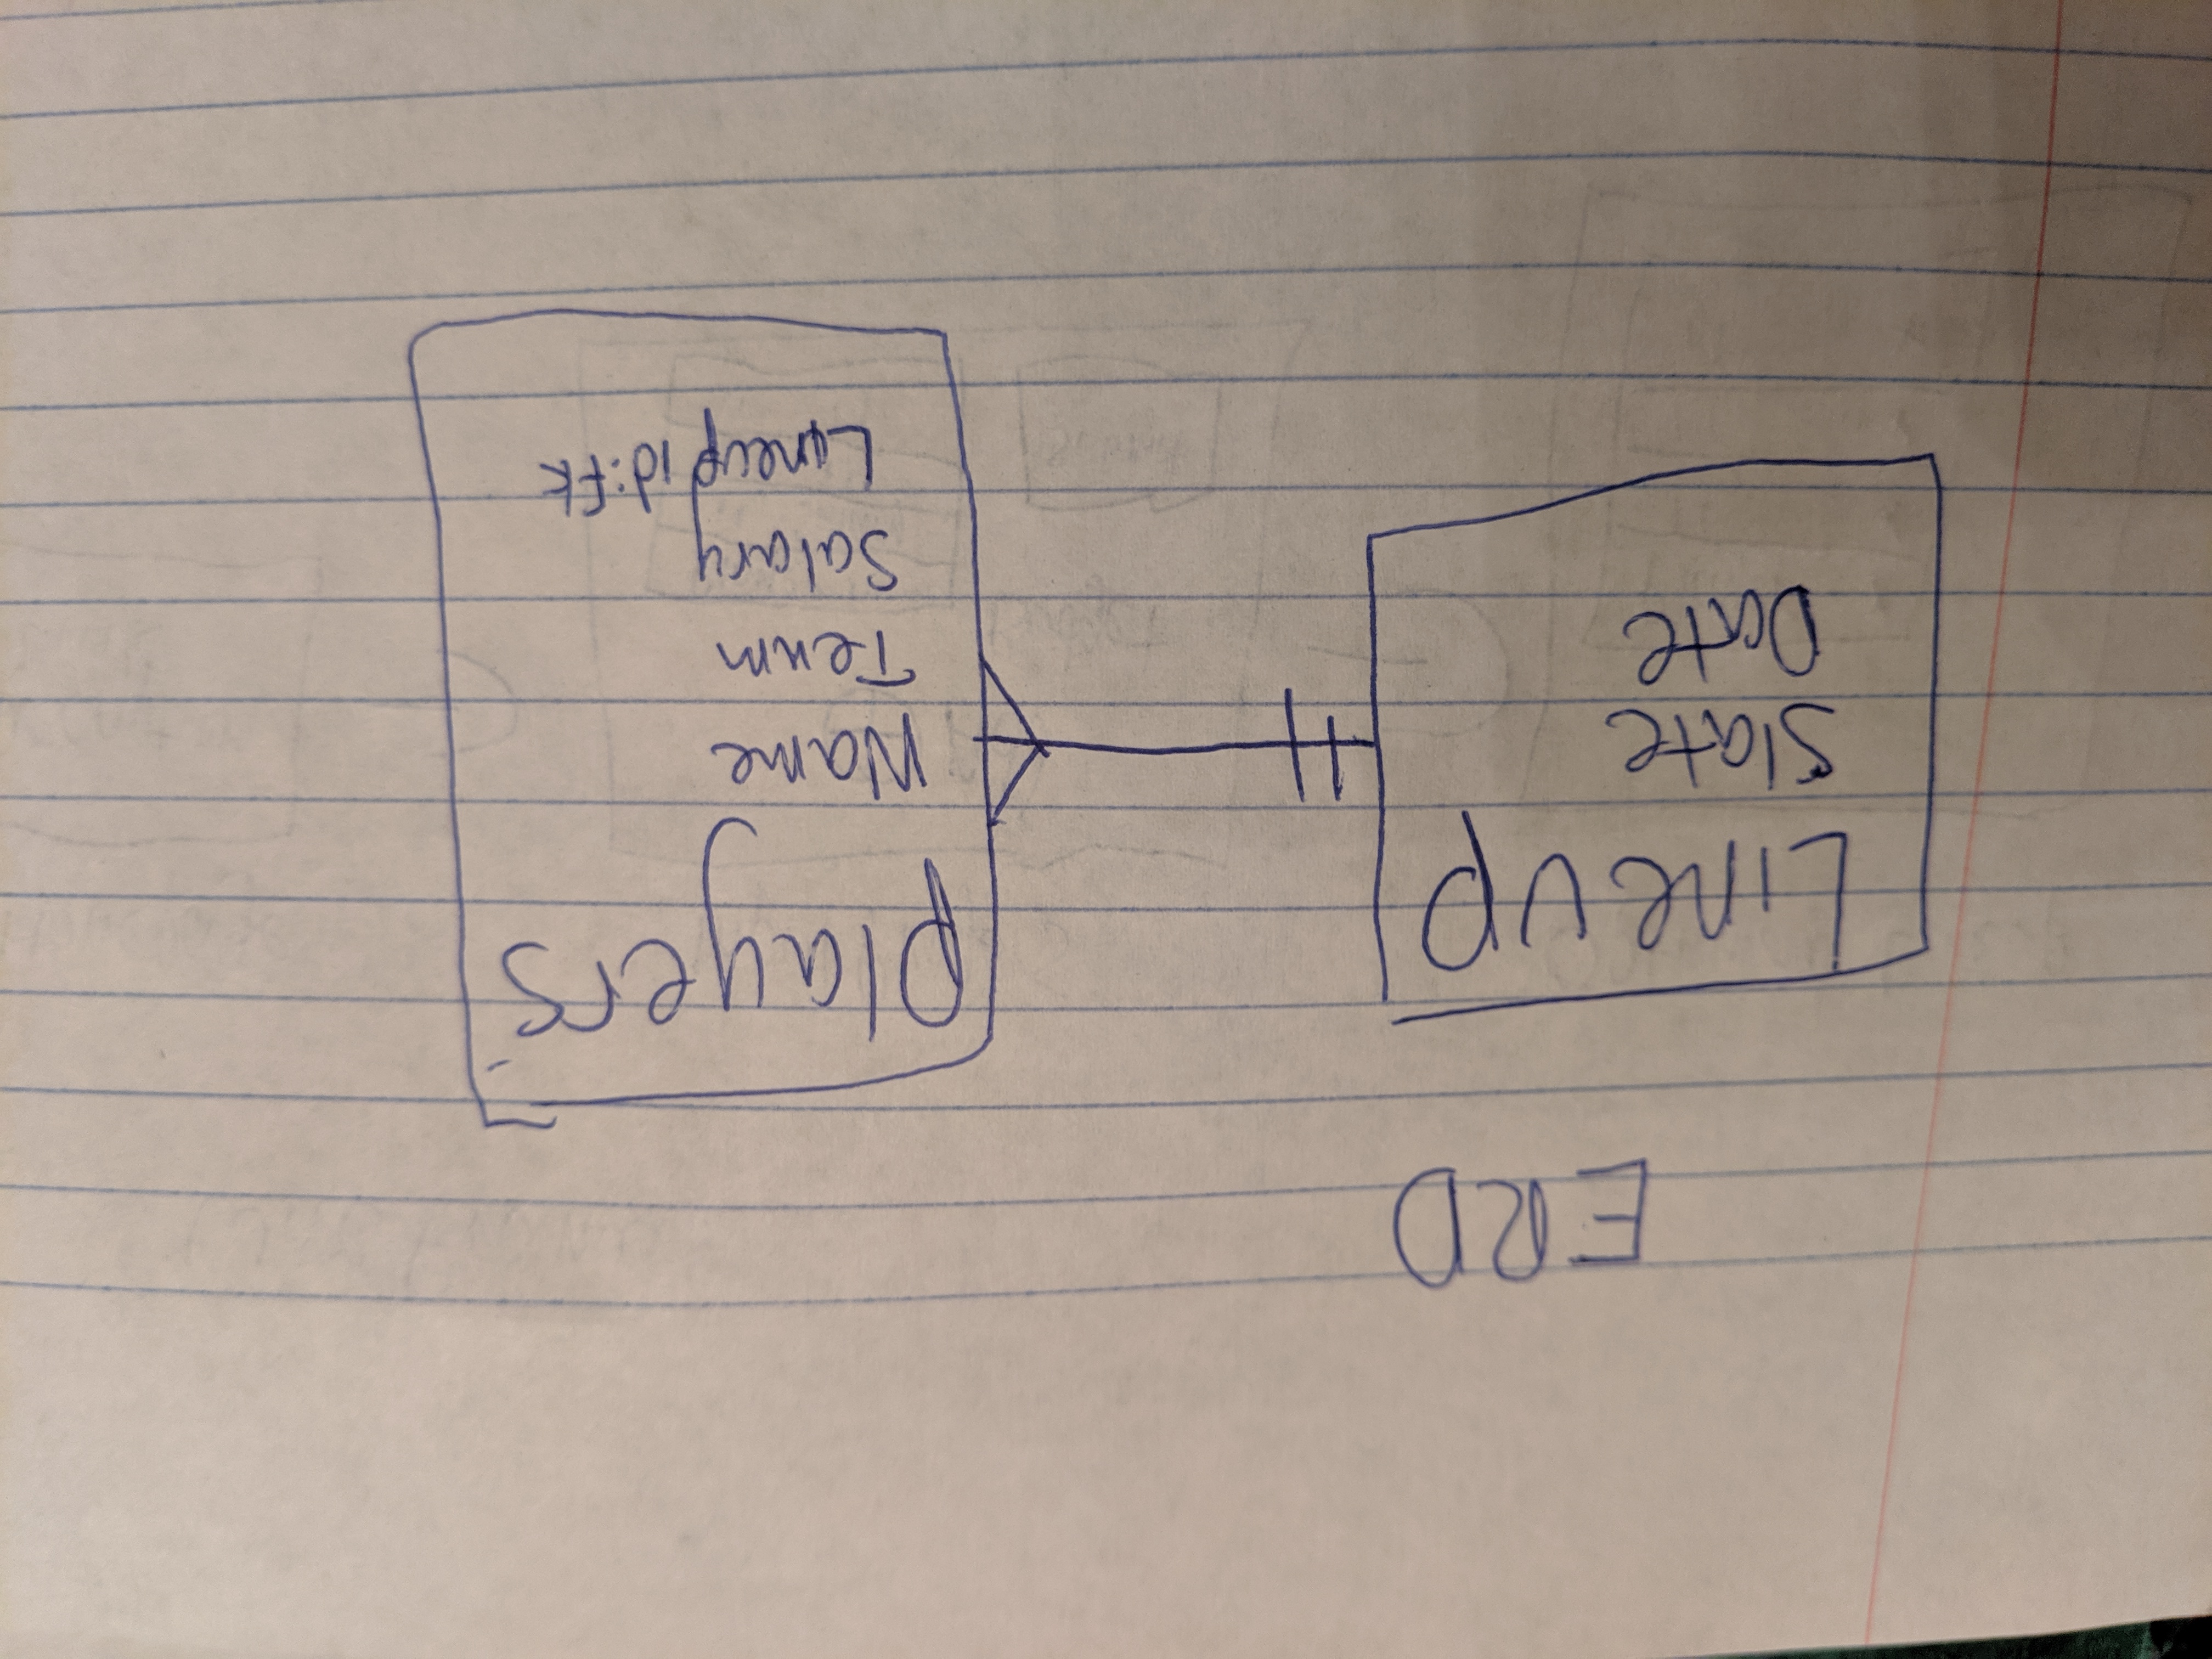 ERD
Lineup
Slate
Date
Players
Name
Team
Salary
Lineup id:fk